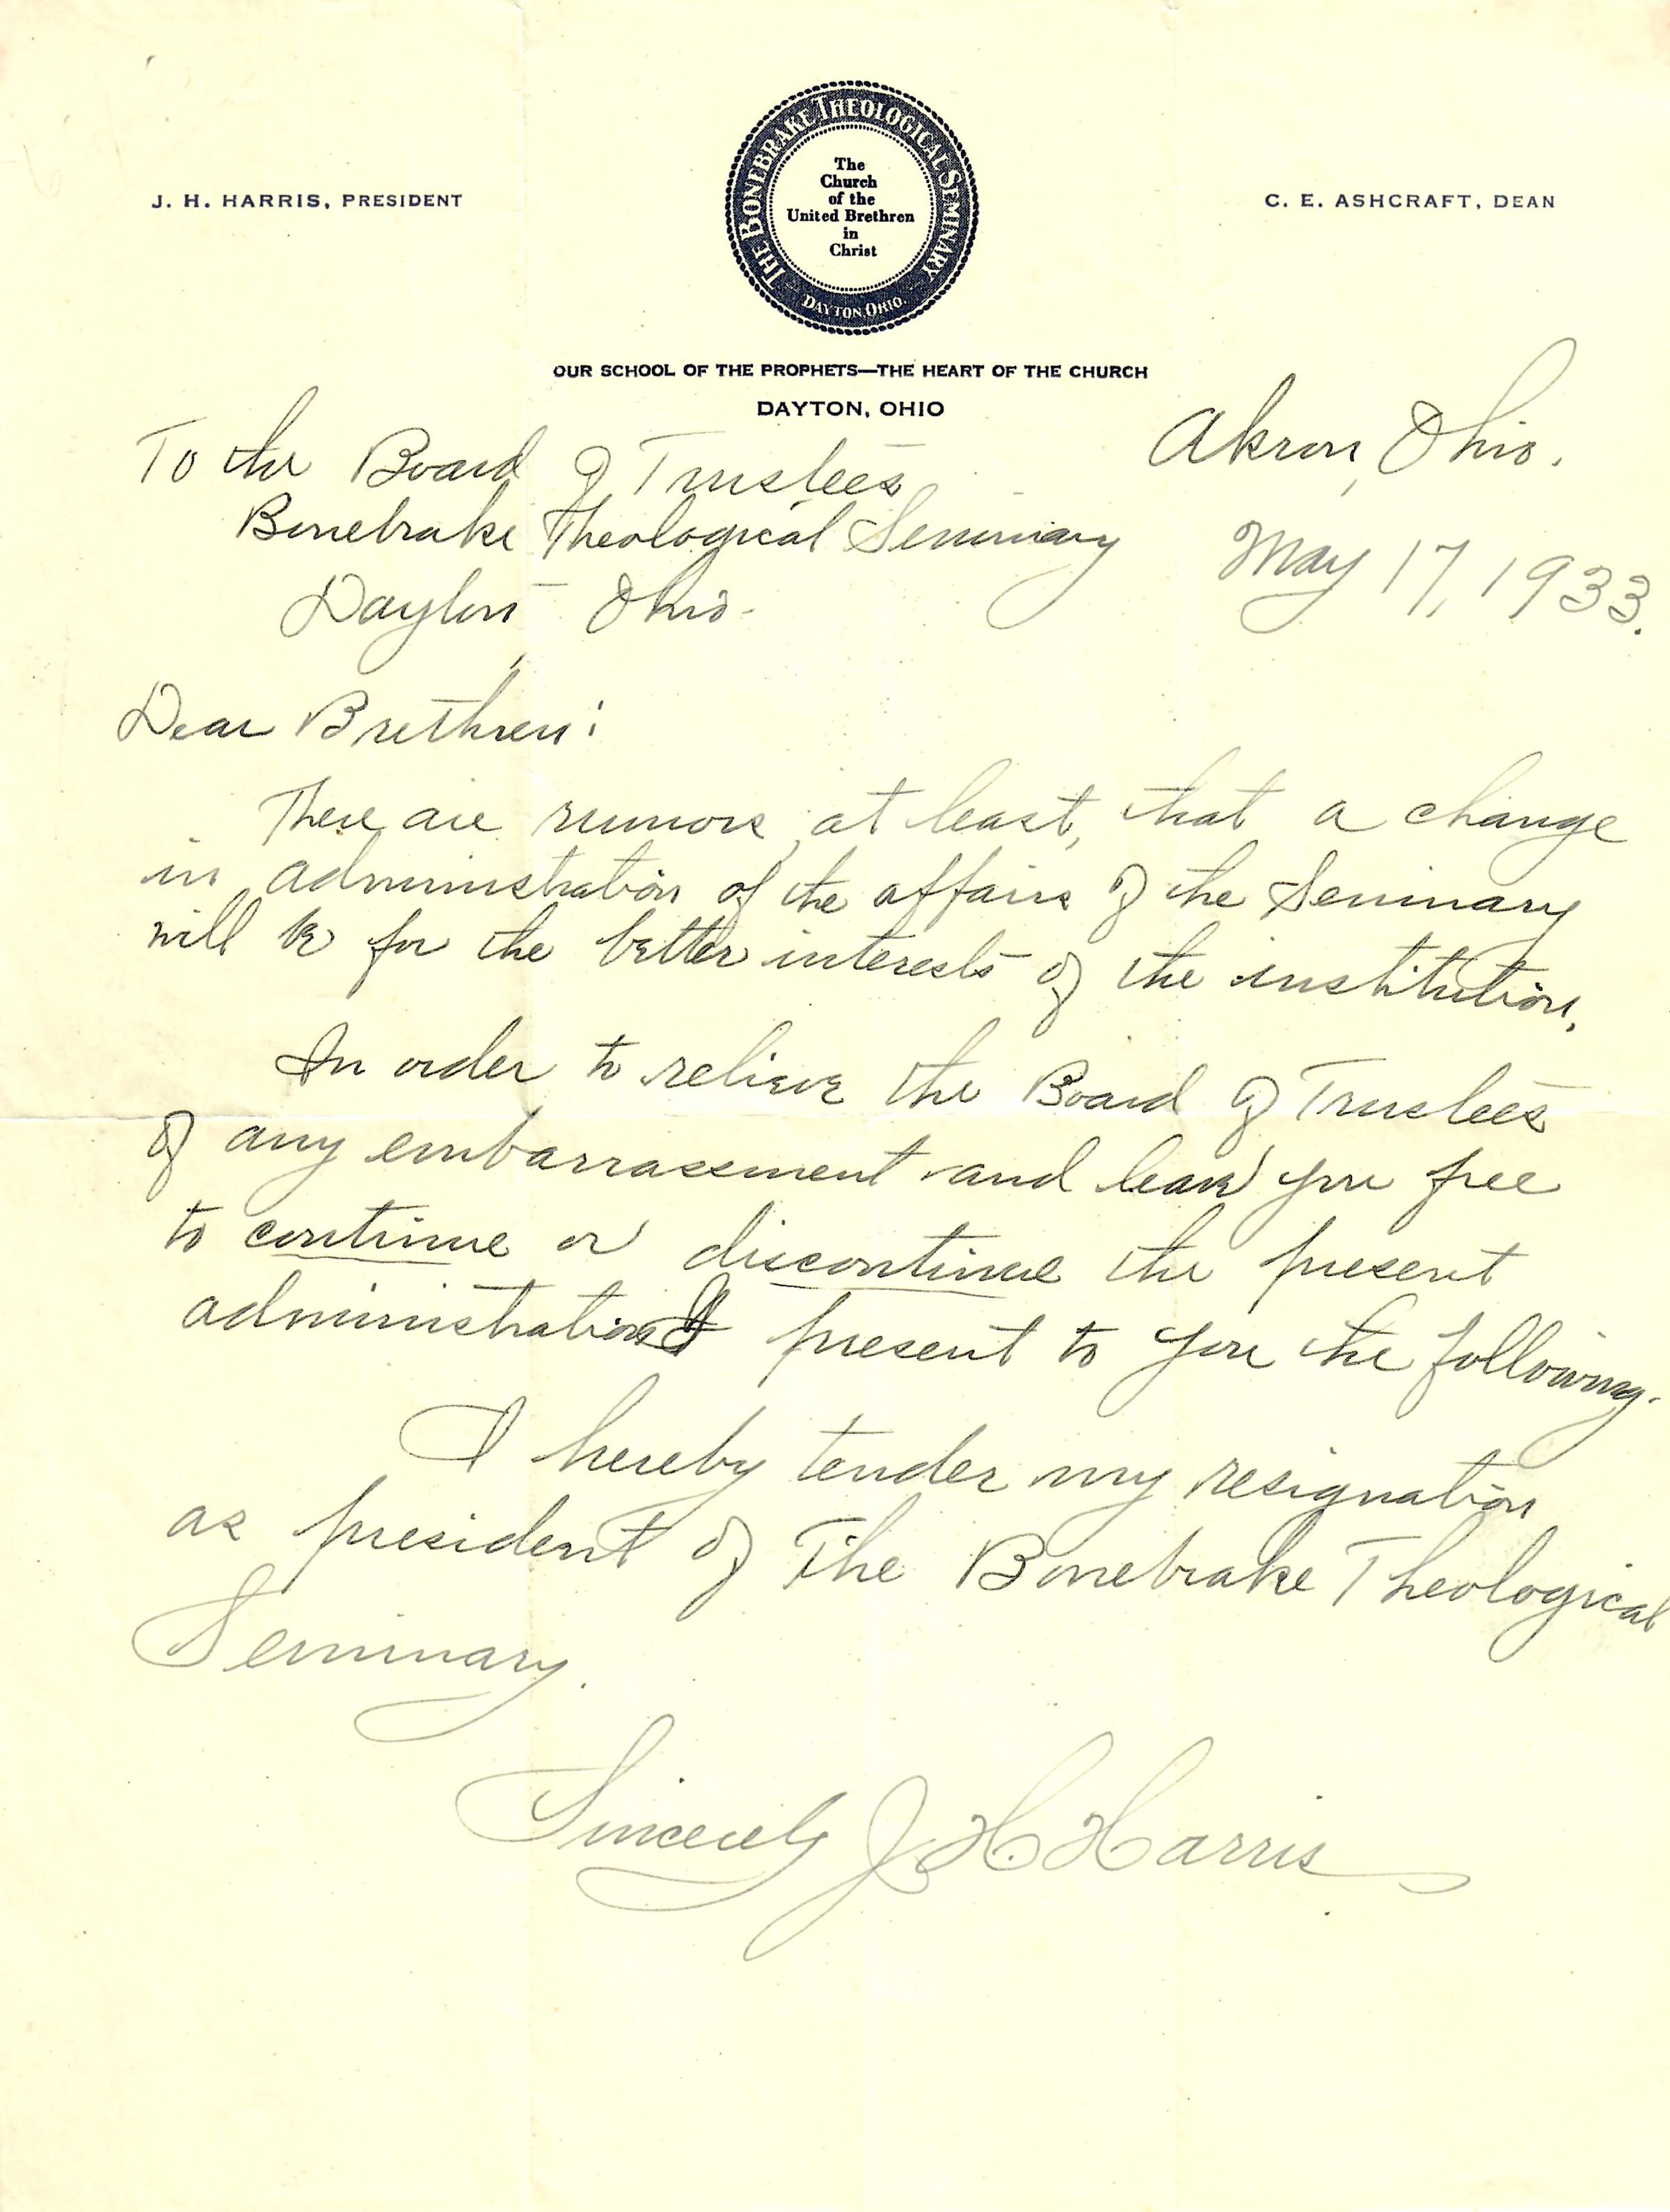 J. H. HARRIS, PRESIDENT
THE BONEBRAKE THEOLOGICAL SEMINARY
DAYTON, OHIO.
The
Church
of the
United Brethren
in
Christ
C. E. ASHCRAFT, DEAN
OUR SCHOOL OF THE PROPHETS—THE HEART OF THE CHURCH
DAYTON, OHIO
Akron, Ohio.
May 17, 1933.
To the Board of Trustees
Bonebrake Theological Seminary
Dayton, Ohio.
Dear Brethren:
There are rumors, at least, that a change
in administration of the affairs of the Seminary
will be for the better interests of the institution.
In order to relieve the Board of Trustees
of any embarrassment and leave you free
to continue or discontinue the present
administration I present to you the following.
I hereby tender my resignation
as president of The Bonebrake Theological
Seminary.
Sincerely J. H. Harris